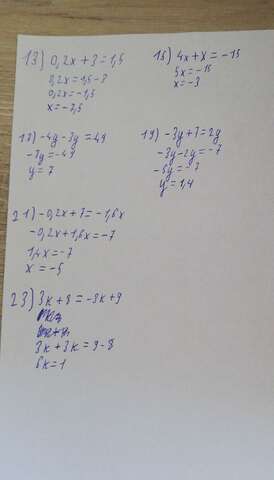 13) 0,2x + 3 = 1,5
0,2x = 1,5 - 3
0,2x = -1,5
x = -7,5
15) 4x + x = -15
5x = -15
x = -3
17) -4y - 3y = 49
-7y = 49
y = 7
19) -3y + 7 = 2y
-3y - 2y = -7
-5y = -7
y = 1,4
21) -0,2x + 7 = -1,6x
-0,2x + 1,6x = -7
1,4x = -7
x = -5
23) 3k + 8 = -3k + 9
3k + 3k = 9 - 8
6k = 1